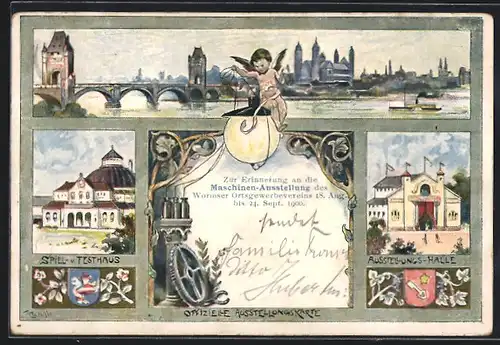 Zur Erinnerung an die
Maschinen-Ausstellung des
Wormser Ortsgewerbevereins 18. Aug.
bis 24. Sept. 1900.
sendet
Familie
Otto
SPIEL- U FESTHAUS
AUSSTELLUNGS-HALLE
OFFIZIELLE AUSSTELLUNGSKARTE